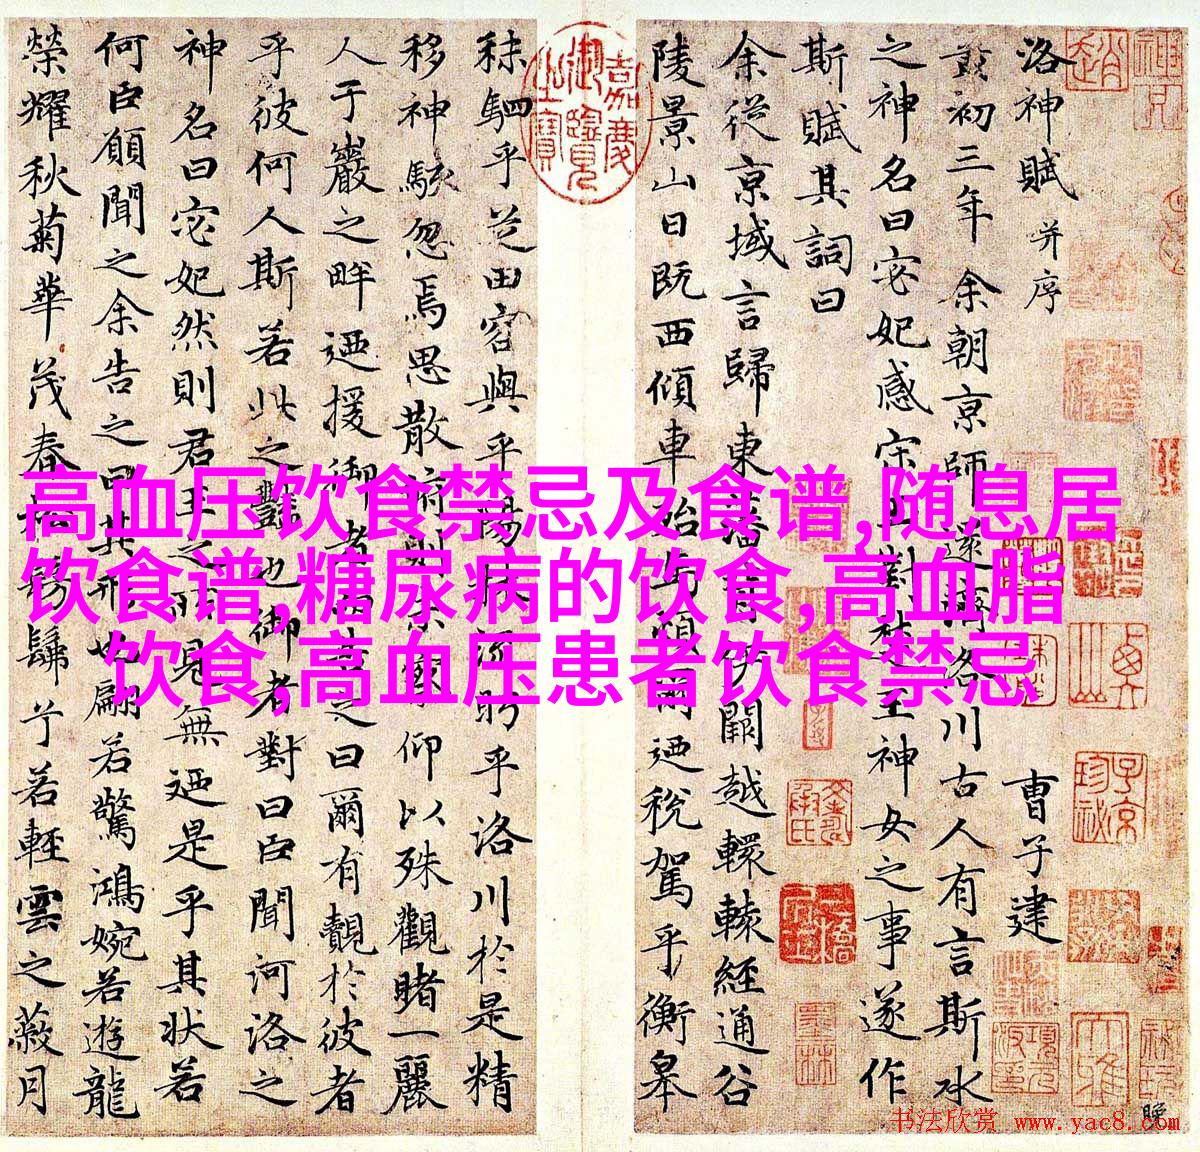 高血压饮食禁忌及食谱,随息居
饮食谱,糖尿病的饮食,高血脂
饮食,高血压患者饮食禁忌
洛神賦 并序 曹子建
黃初三年余朝京師還濟洛川古人有言斯水
之神名曰宓妃感宋玉對楚王神女之事遂作
斯賦其詞曰
余從京域言歸東藩背伊闕越轘轅經通谷
陵景山日既西傾車殆馬煩爾迺稅駕乎衡皋
嘉慶御覽之寶
秣駟乎芝田容與乎陽林流眄乎洛川於是精
移神駭忽焉思散俯則未察仰以殊觀睹一麗
人于巖之畔迺援御者而告之曰爾有覿於彼者
乎彼何人斯若此之豔也御者對曰臣聞河洛之
神名曰宓妃然則君王之所見無迺是乎其狀若
何臣願聞之余告之曰其形也翩若驚鴻婉若遊龍
榮耀秋菊華茂春松髣髴兮若輕雲之蔽月
书法欣赏 www.yac8.com